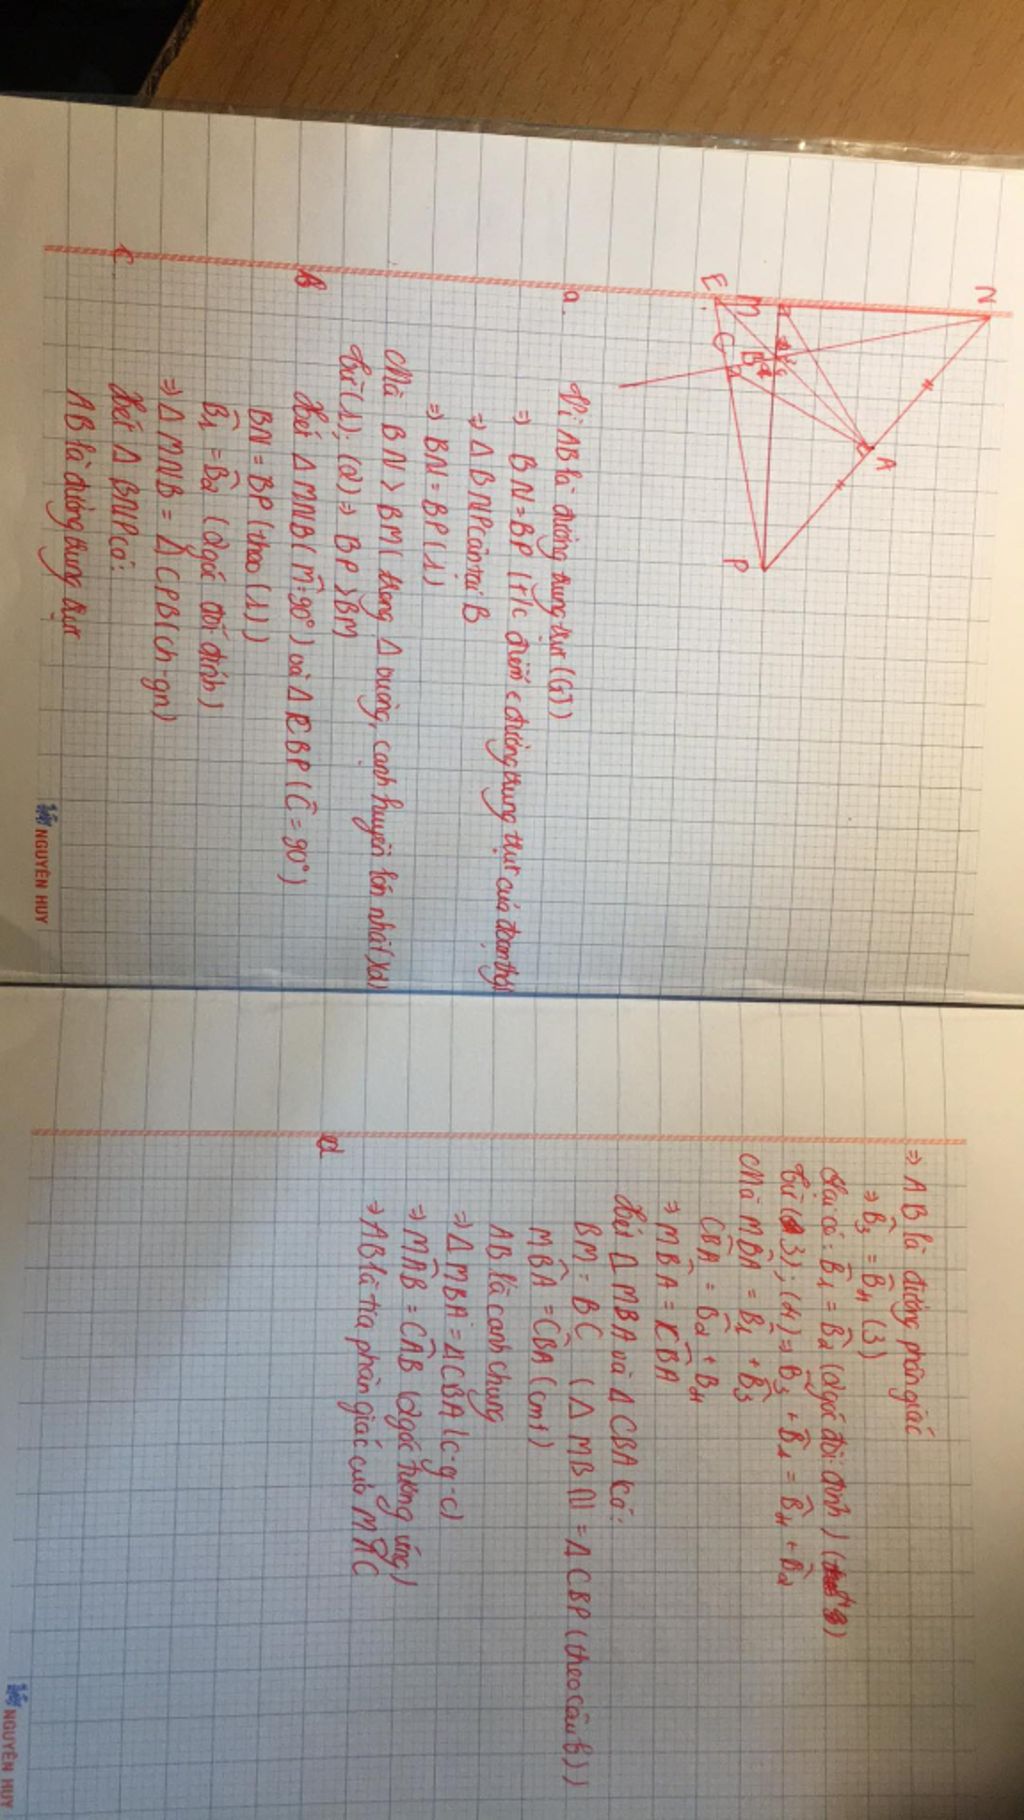 N
A
E
M
C
B
P
a.
Vì AB là đường trung trực (GT)
⇒ BN=BP (t/c điểm ∈ đường trung trực của đoạn thẳng)
⇒ Δ BNP cân tại B
⇒ BN = BP (1)
Mà BN > BM ( trong Δ vuông, cạnh huyền lớn nhất) (2)
Từ (1); (2) ⇒ BP > BM
b
Xét Δ MNB ( M̂=90°) và Δ CBP ( Ĉ = 90°)
BN = BP (theo (1))
B̂1 = B̂2 (2 góc đối đỉnh)
⇒ Δ MNB = Δ CPB (ch-gn)
c
Xét Δ BNP có:
AB là đường trung trực
NGUYÊN HUY
⇒ AB là đường phân giác
⇒ B̂3 = B̂4 (3)
Ta có: B̂1 = B̂2 (2 góc đối đỉnh)
Từ (3); (4) ⇒ B̂3 + B̂1 = B̂4 + B̂2
Mà MB̂A = B̂1 + B̂3
CB̂A = B̂2 + B̂4
⇒ MB̂A = CB̂A
Xét Δ MBA và Δ CBA có:
BM = BC (Δ MBN = Δ CBP (theo câu b))
MB̂A = CB̂A (cmt)
AB là cạnh chung
⇒ Δ MBA = Δ CBA (c-g-c)
⇒ MÂB = CÂB (2 góc tương ứng)
⇒ AB là tia phân giác của MÂC
d
NGUYÊN HUY